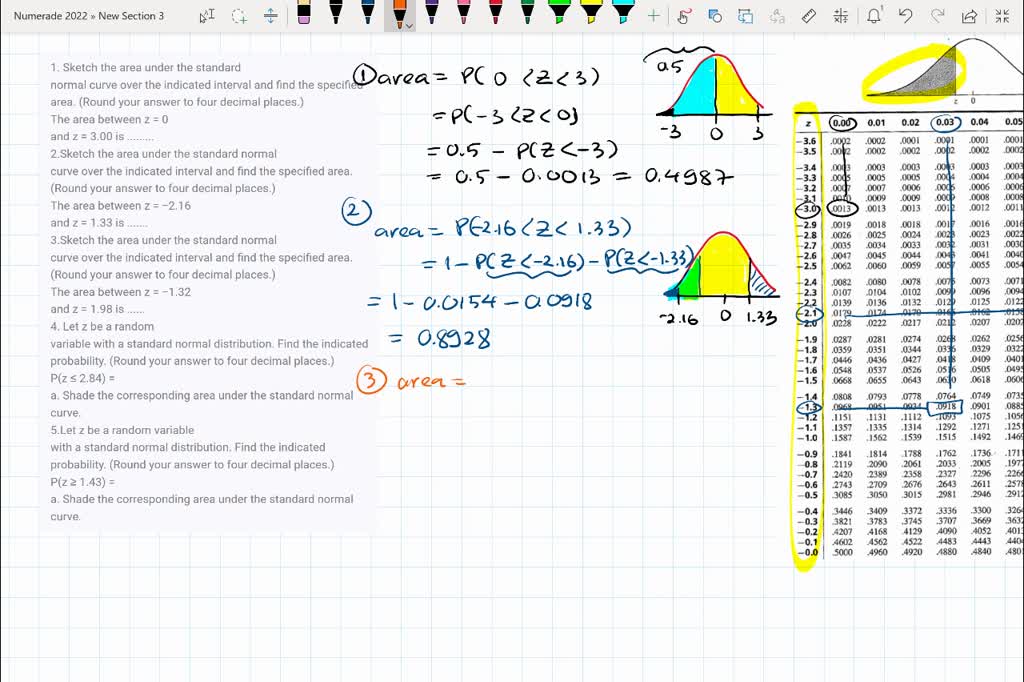 Numerade 2022 » New Section 3
1. Sketch the area under the standard
normal curve over the indicated interval and find the specified
area. (Round your answer to four decimal places.)
The area between z = 0
and z = 3.00 is .........
2.Sketch the area under the standard normal
curve over the indicated interval and find the specified area.
(Round your answer to four decimal places.)
The area between z = −2.16
and z = 1.33 is .......
3.Sketch the area under the standard normal
curve over the indicated interval and find the specified area.
(Round your answer to four decimal places.)
The area between z = −1.32
and z = 1.98 is ......
4. Let z be a random
variable with a standard normal distribution. Find the indicated
probability. (Round your answer to four decimal places.)
P(z ≤ 2.84) =
a. Shade the corresponding area under the standard normal
curve.
5.Let z be a random variable
with a standard normal distribution. Find the indicated
probability. (Round your answer to four decimal places.)
P(z ≥ 1.43) =
a. Shade the corresponding area under the standard normal
curve.
① area = P( 0 < Z < 3)
= P(-3 < Z < 0)
= 0.5 - P(Z < -3)
= 0.5 - 0.0013 = 0.4987
0.5
-3 0 3
② area = P(-2.16 < Z < 1.33)
= 1 - P(Z < -2.16) - P(Z < -1.33)
= 1 - 0.0154 - 0.0918
= 0.8928
-2.16 0 1.33
③ area =
z 0
z 0.00 0.01 0.02 0.03 0.04 0.05
−3.6 .0002 .0002 .0001 .0001 .0001 .0001
−3.5 .0002 .0002 .0002 .0002 .0002
−3.4 .0003 .0003 .0003 .0003
−3.3 .0005 .0004 .0004 .0004
−3.2 .0007 .0006 .0006 .0006
−3.1 .0009 .0009 .0008 .0008
−3.0 .0013 .0013 .0013 .0012 .0012 .0011
−2.9 .0019 .0018 .0018 .0017 .0016 .0016
−2.8 .0026 .0025 .0024 .0023 .0023 .0022
−2.7 .0035 .0034 .0033 .0032 .0031 .0030
−2.6 .0047 .0045 .0044 .0043 .0041 .0040
−2.5 .0062 .0060 .0059 .0057 .0055 .0054
−2.4 .0082 .0080 .0078 .0075 .0073 .0071
−2.3 .0107 .0104 .0102 .0099 .0096 .0094
−2.2 .0139 .0136 .0132 .0129 .0125 .0122
−2.1 .0179 .0174 .0170 .0162 .0158
−2.0 .0228 .0222 .0217 .0212 .0207 .0202
−1.9 .0287 .0281 .0274 .0268 .0262 .0256
−1.8 .0359 .0351 .0344 .0336 .0329 .0322
−1.7 .0446 .0436 .0427 .0418 .0409 .0401
−1.6 .0548 .0537 .0526 .0516 .0505 .0495
−1.5 .0668 .0655 .0643 .0630 .0618 .0606
−1.4 .0808 .0793 .0778 .0764 .0749 .0735
−1.3 .0968 .0951 .0934 .0918 .0901 .0885
−1.2 .1151 .1131 .1112 .1093 .1075 .1056
−1.1 .1357 .1335 .1314 .1292 .1271 .1251
−1.0 .1587 .1562 .1539 .1515 .1492 .1469
−0.9 .1841 .1814 .1788 .1762 .1736 .1711
−0.8 .2119 .2090 .2061 .2033 .2005 .1977
−0.7 .2420 .2389 .2358 .2327 .2296 .2266
−0.6 .2743 .2709 .2676 .2643 .2611 .2578
−0.5 .3085 .3050 .3015 .2981 .2946 .2912
−0.4 .3446 .3409 .3372 .3336 .3300 .3264
−0.3 .3821 .3783 .3745 .3707 .3669 .3632
−0.2 .4207 .4168 .4129 .4090 .4052 .4013
−0.1 .4602 .4562 .4522 .4483 .4443 .4404
−0.0 .5000 .4960 .4920 .4880 .4840 .4801